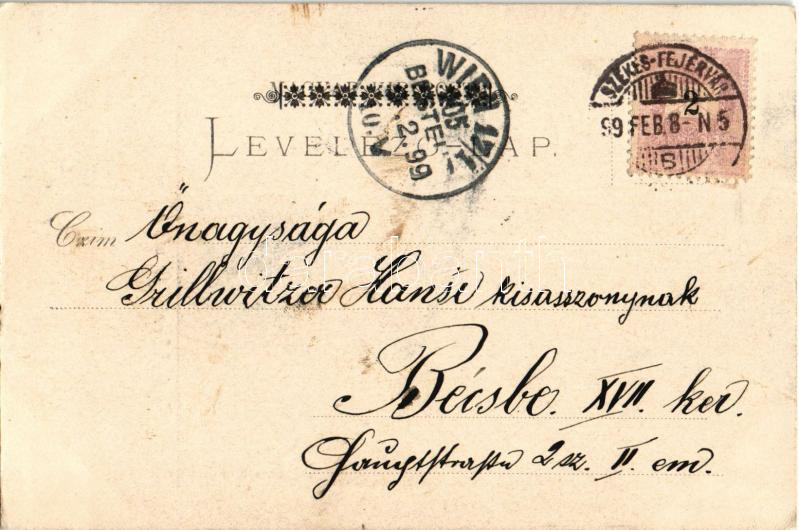 WIEN 17/1
BESTELLT
.2.99
10.V
SZÉKES-FEJÉRVÁR
2
99 FEB. 8 - N 5
B
LEVELEZŐ-LAP.
Czim Őnagysága
Grillwitzer Hansi kisasszonynak
Bécsbe. XVII. ker.
Hauptstraße 2 sz. II. em.
darabanth